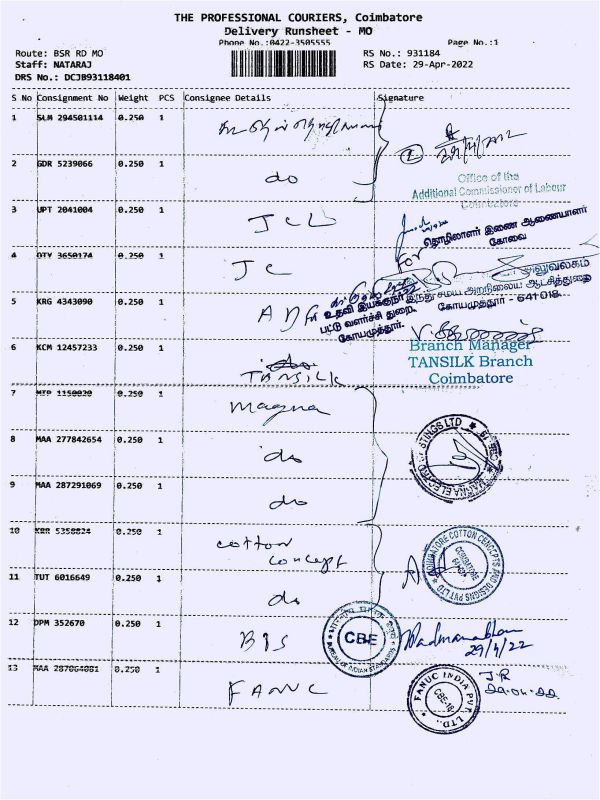 THE PROFESSIONAL COURIERS, Coimbatore
Delivery Runsheet - MO
Phone No.:0422-3505555 Page No.:1
Route: BSR RD MO RS No.: 931184
Staff: NATARAJ RS Date: 29-Apr-2022
DRS No.: DCJB93118401
S No Consignment No Weight PCS Consignee Details Signature
1 SLM 294501114 0.250 1
29/4/2022
2 GDR 5239066 0.250 1 do
Office of the
Additional Commissioner of Labour
Coimbatore
3 UPT 2041004 0.250 1 JCL
தொழிலாளர் இணை ஆணையாளர்
கோவை
for
4 OTY 3650174 0.250 1 JC
அலுவலகம்
இந்து சமய அறநிலைய ஆட்சித்துறை
கோயமுத்தூர் - 641018.
5 KRG 4343090 0.250 1 AD
உதவி இயக்குநர்
பட்டு வளர்ச்சி துறை,
கோயமுத்தூர்.
6 KCM 12457233 0.250 1 TANSILK
Branch Manager
TANSILK Branch
Coimbatore
7 1150820 0.250 1 Magna
8 MAA 277842654 0.250 1 do
9 MAA 287291069 0.250 1 do
10 KRR 5358824 0.250 1 cotton
concept
COIMBATORE COTTON CONCEPTS AND DESIGNS PVT LTD
COIMBATORE
11 TUT 6016649 0.250 1 do
12 DPM 352670 0.250 1 BIS
BUREAU OF INDIAN STANDARDS
CBE
Padmanabhan
29/4/22
13 MAA 287064081 0.250 1 FANUC
FANUC INDIA PVT. LTD.,
CBE-18
J.R
29.04.22